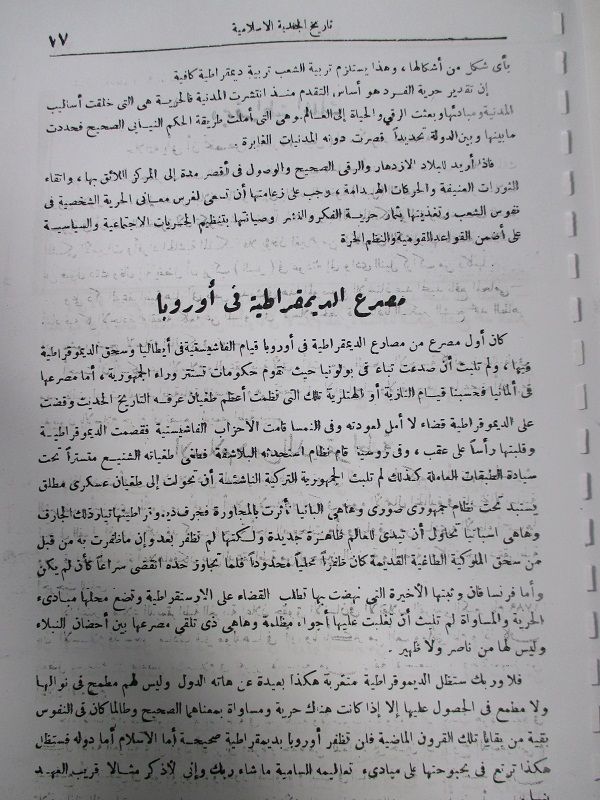 تاريخ الجندية الاسلامية
٢٧
بأى شكل من أشكالها ، وهذا يستلزم تربية الشعب تربية ديمقراطية كافية
إن تقدير حرية الفرد هو أساس التقدم منذ انتشرت المدنية فالحرية هى التى خلقت أساليب
المدنية ومبادئها وبعثت الرقى والحياة إلى العالم وهى التى أملت طريقة الحكم النيابى الصحيح فحددت
ما بينها وبين الدولة تحديداً قصرت دونه المدنيات الغابرة
فاذا أريد للبلاد الازدهار والرقى الصحيح والوصول فى أقصر مدة إلى المركز اللائق بها ، واتقاء
الثورات العنيفة والحركات الهدامة ، وجب على زعامتها أن تسعى لغرس معانى الحرية الشخصية فى
نفوس الشعب وتغذيتها بثمار حرية الفكر والنشر وصيانتها بتنظيم الحريات الاجتماعية والسياسية
على أضمن القواعد القومية والنظم الحرة
مصرع الديمقراطية فى أوروبا
كان أول مصرع من مصارع الديمقراطية فى أوروبا قيام الفاشيستية فى أيطاليا وسحق الديموقراطية
فيها ، ولم تلبث أن صدعت تباعا فى بولونيا حيث تقوم حكومات تستتر وراء الجمهورية ، أما مصرعها
فى ألمانيا فحسبنا قيام النازية أو الهتلرية تلك التى نظمت أعظم طغيان عرفه التاريخ الحديث وقضت
على الديموقراطية قضاء لا أمل لعودته وفى النمسا قامت الأحزاب الفاشستية فقصمت الديموقراطية
وقلبتها رأساً على عقب ، وفى روسيا قام نظام استحدثه البلاشفة فطغى طغيانه الشنيع متستراً تحت
سيادة الطبقات العاملة كذلك لم تلبث الجمهورية التركية الناشئة أن تحولت إلى طغيان عسكرى مطلق
يستبد تحت نظام جمهورى صورى وهاهى البانيا تأثرت بالمجاورة فجرف ديموقراطيتها تيار ذلك الجارف
وهاهى اسبانيا تحاول أن تبدى للعالم ظاهرة جديدة ولكنها لم تظفر بعد وإن ما ظفرت به من قبل
من سحق الملوكية الطاغية القديمة كان ظفراً محلياً محدوداً فلما تجاوز حده انقضى سراعا كأن لم يكن
وأما فرنسا فان وثبتها الأخيرة التى نهضت بها تطلب القضاء على الارستقراطية وتضع محلها مبادىء
الحرية والمساواة لم تلبث أن تغلبت عليها أجواء مظلمة وهاهى ذى تلقى مصرعها بين أحضان النبلاء
وليس لها من ناصر ولا ظهير .
فلا وربك ستظل الديموقراطية متغربة هكذا بعيدة عن هاته الدول وليس لهم مطمح فى نوالها
ولا مطمع فى الحصول عليها إلا إذا كانت هناك حرية ومساواة بمعناهما الصحيح وطالما كان فى النفوس
بقية من بقايا تلك القرون الماضية فلن تظفر أوروبا بديمقراطية صحيحة أما الاسلام أما دوله فستظل
هكذا ترتع فى بحبوحتها على مبادىء تعاليمه السامية ما شاء ربك وإنى لأذكر مثالا قريب العهد